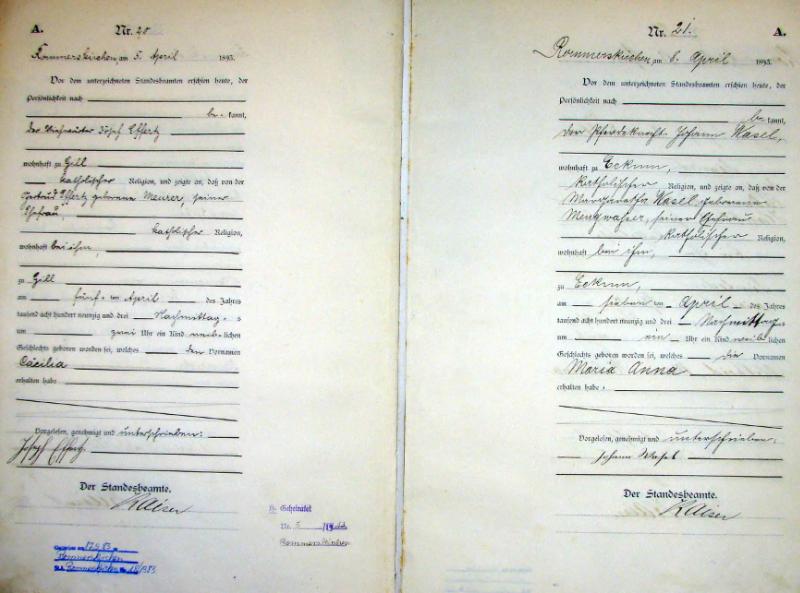 A.
Nr. 20
Rommerskirchen, am 5. April 1893.
Vor dem unterzeichneten Standesbeamten erschien heute, der
Persönlichkeit nach
be- kannt,
der Josef Effertz
wohnhaft zu Gill
katholischer Religion, und zeigte an, daß von der
Gertrud Effertz geborene Meurer, seiner
Ehefrau,
katholischer Religion,
wohnhaft bei ihm,
zu Gill
am fünf- ten April des Jahres
tausend acht hundert neunzig und drei Nachmittags
um zwei Uhr ein Kind weib- lichen
Geschlechts geboren worden sei, welches den Vornamen
Cäcilia
erhalten habe
Vorgelesen, genehmigt und unterschrieben:
Joseph Effertz.
Der Standesbeamte.
Kaiser
Geheiratet
Nr. 5
Rommerskirchen
Rommerskirchen
Nr. 21.
A.
Rommerskirchen, am 8. April 1893.
Vor dem unterzeichneten Standesbeamten erschien heute, der
Persönlichkeit nach
be- kannt,
der Pferdeknecht Johann Wasel,
wohnhaft zu Eckum,
katholischer Religion, und zeigte an, daß von der
Margaretha Wasel geborene
seiner Ehefrau
katholischer Religion,
wohnhaft bei ihm,
zu Eckum,
am sieben ten April des Jahres
tausend acht hundert neunzig und drei Nachmittags
um Uhr ein Kind weib lichen
Geschlechts geboren worden sei, welches die Vornamen
Maria Anna
erhalten habe
Vorgelesen, genehmigt und unterschrieben:
Johann Wasel
Der Standesbeamte.
Kaiser